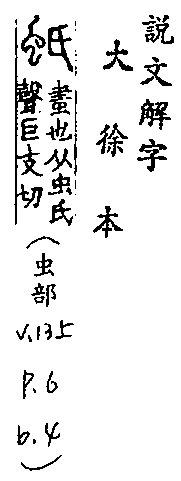 說文解字
大徐本
蚔
畫也从虫氏
聲巨支切
(虫部
V.135
P.6
b.4)